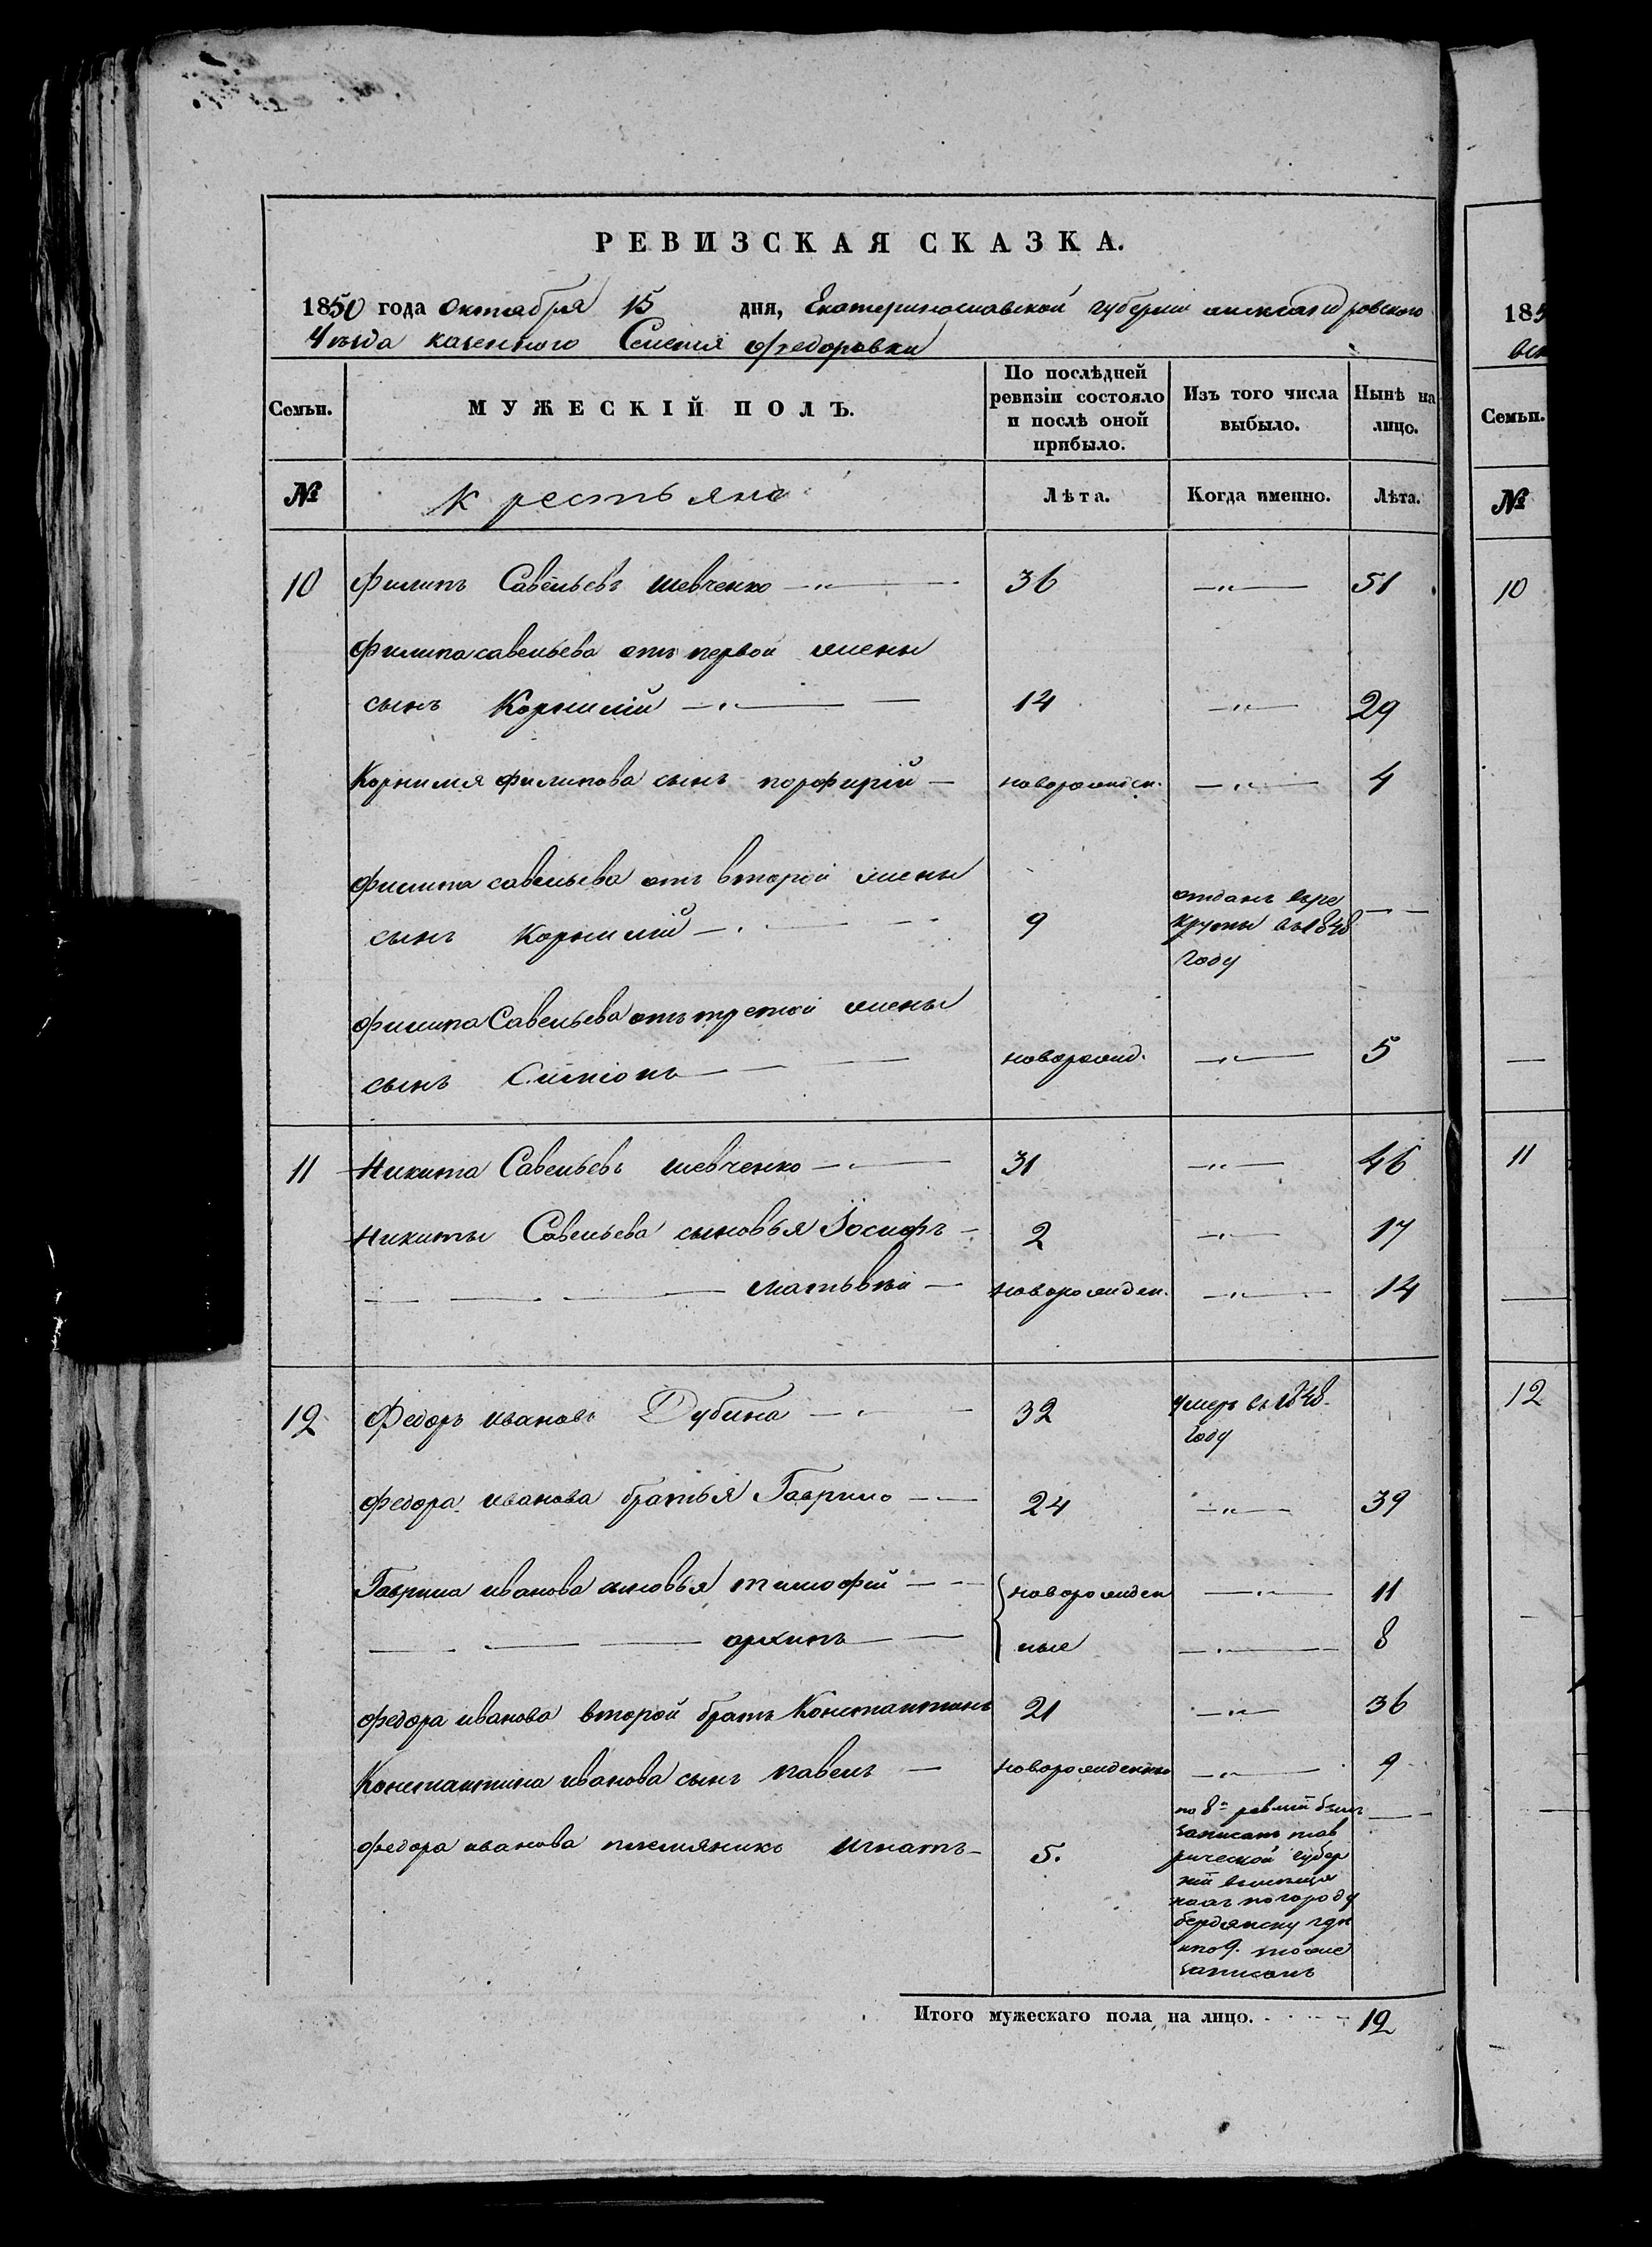 РЕВИЗСКАЯ СКАЗКА.
1850 года октября 15 дня, Екатеринославской губернии александровского
Уезда казенного Селения Федоровки
Семьи. МУЖЕСКІЙ ПОЛЪ. По послѣдней ревизіи состояло и послѣ оной прибыло. Изъ того числа выбыло. Нынѣ на лицо.
№ Крестьяне Лѣта. Когда именно. Лѣта.
10 Филипъ Савельевъ шевченко 36 51
Филипа савельева отъ первой жены
сынъ Корнилій 14 29
Корнилия филипова сынъ порфирій новорожден. 4
филипа савельева отъ второй жены
сынъ Корнилій 9 отданъ въре
круты въ 1848
году
филипа Савельева отъ третой жены
сынъ Симіонъ новорожд. 5
11 Никита Савельевъ шевченко 31 46
Никиты Савельева сыновья Іосифъ 2 17
матьвей новорожден. 14
12 Федоръ ивановъ Дубина 32 умеръ въ 1848.
году
федора иванова братья Гаврило 24 39
Гаврила иванова сыновья тимофей новорожден 11
архипъ ные 8
федора иванова второй братъ Константинъ 21 36
Константина иванова сынъ павелъ новорожденны 9
федора иванова племяникъ игнатъ 5. по 8й ревизіи былъ
записанъ тав
рической губер
ніи
по городу
бердянску где
ипо 9. тоже
записанъ
Итого мужескаго пола на лицо. 12
185
Семьи.
№
10
11
12